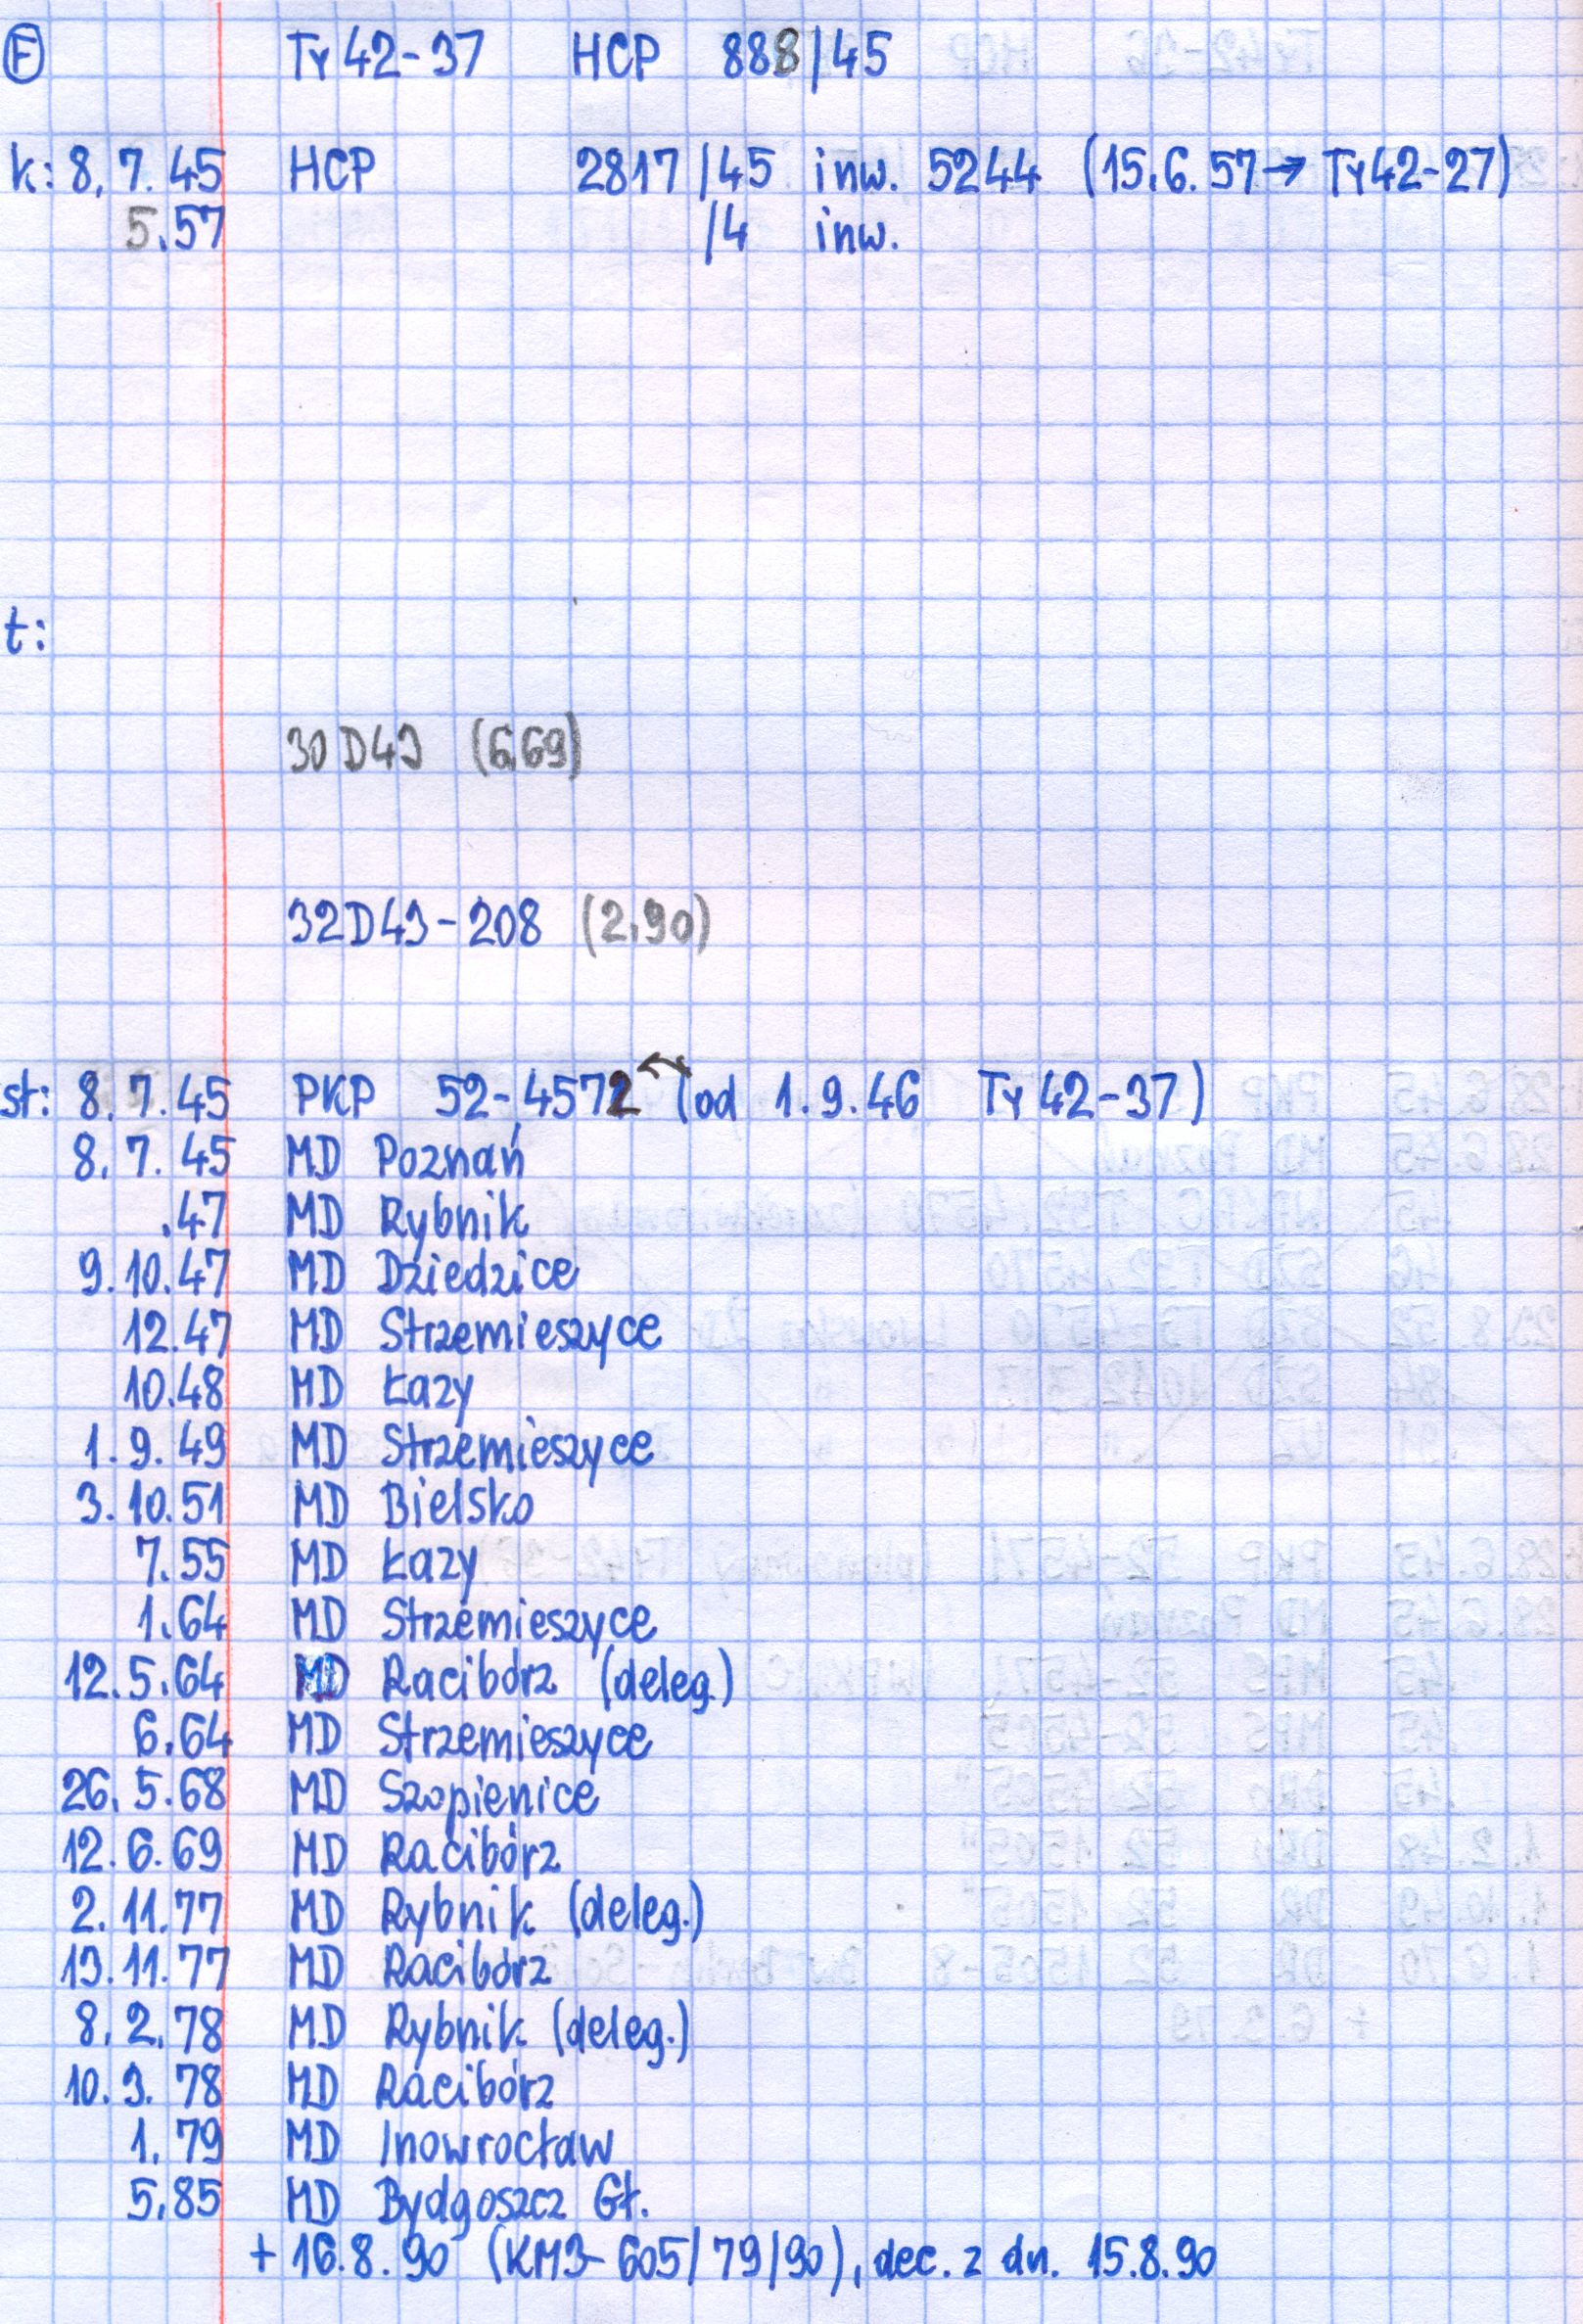 F Ty42-37 HCP 888/45
k: 8.7.45 HCP 2817/45 inw. 5244 (15.6.57→ Ty42-27)
5.57 /4 inw.
t:
30D43 (6.69)
32D43-208 (2.90)
st: 8.7.45 PKP 52-4572 (od 1.9.46 Ty42-37)
8.7.45 MD Poznań
.47 MD Rybnik
9.10.47 MD Dziedzice
12.47 MD Strzemieszyce
10.48 MD Łazy
1.9.49 MD Strzemieszyce
3.10.51 MD Bielsko
7.55 MD Łazy
1.64 MD Strzemieszyce
12.5.64 MD Racibórz (deleg.)
6.64 MD Strzemieszyce
26.5.68 MD Szopienice
12.6.69 MD Racibórz
2.11.77 MD Rybnik (deleg.)
13.11.77 MD Racibórz
8.2.78 MD Rybnik (deleg.)
10.3.78 MD Racibórz
1.79 MD Inowrocław
5.85 MD Bydgoszcz Gł.
+ 16.8.90 (KM3-605/79/90), dec. z dn. 15.8.90